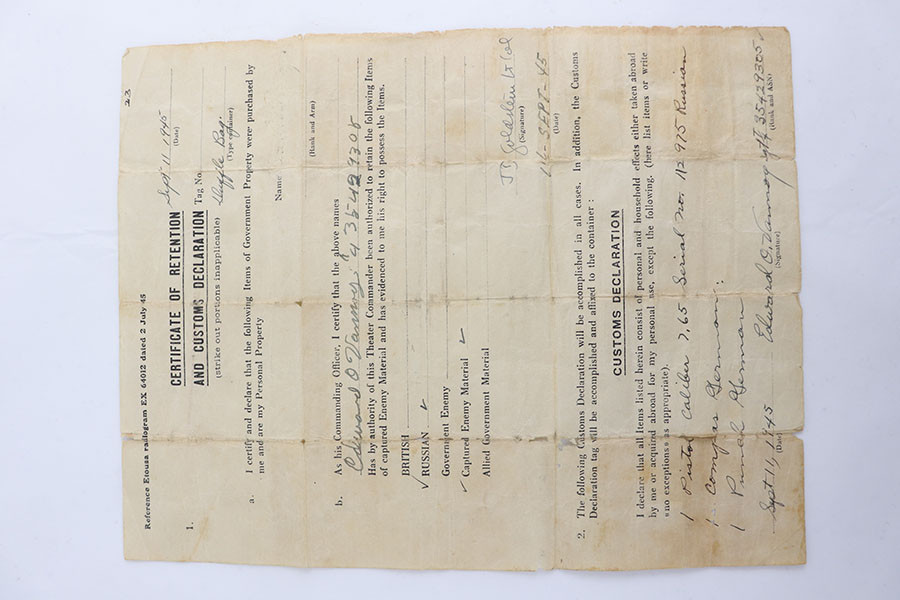 23
Reference Etousa radiogram EX 64012 dated 2 July 45
1. CERTIFICATE OF RETENTION Sept 11 1945
(Date)
AND CUSTOMS DECLARATION Tag No.
(strike out portions inapplicable) Duffle Bag.
(Type of container)
a. I certify and declare that the following Items of Government Property were purchased by
me and are my Personal Property
Name
(Rank and Arm)
b. As his Commanding Officer, I certify that the above names
Edward O
Has by authority of this Theater Commander been authorized to retain the following Items
of captured Enemy Material and has evidenced to me his right to possess the Items.
BRITISH
RUSSIAN
Government Enemy
Captured Enemy Material
Allied Government Material
Lt Col
(Signature)
SEPT-45
(Date)
2. The following Customs Declaration will be accomplished in all cases. In addition, the Customs
Declaration tag will be accomplished and affixed to the container :
CUSTOMS DECLARATION
I declare that all Items listed herein consist of personal and household effects either taken abroad
by me or acquired abroad for my personal use, except the following, (here list items or write
»no exceptions» as appropriate).
1 Pistol Caliber 7,65 Serial No. 112 975 Russian
1 Compas German.
1 German
Sept 11, 1945 Edward O. 35429305
(Date) (Signature) (Rank and ASN)